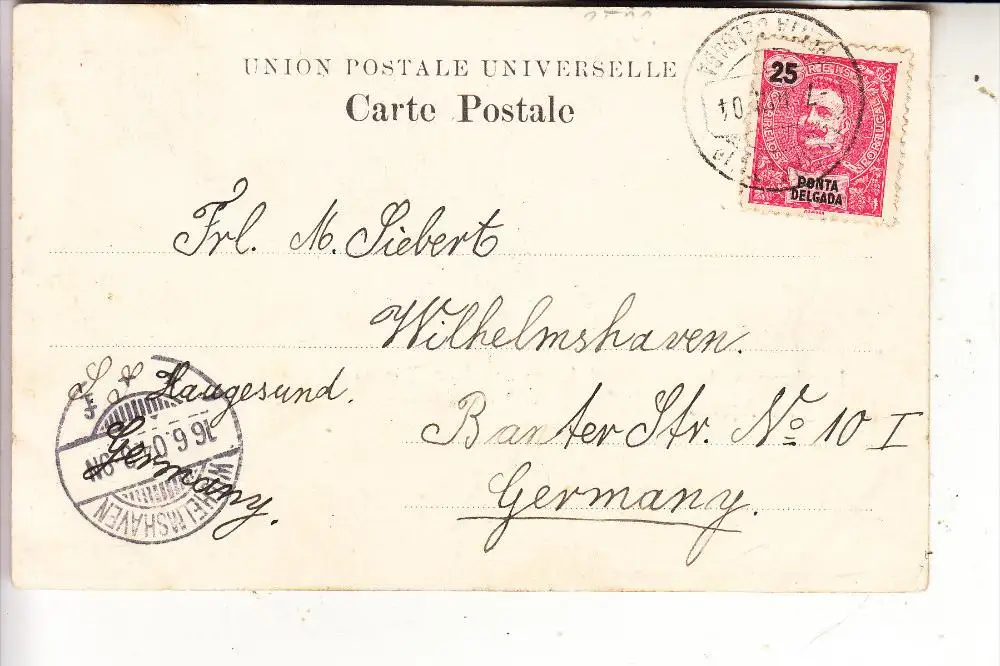 UNION POSTALE UNIVERSELLE
Carte Postale
25
REIS
CORREIOS
PORTUGAL
PONTA
DELGADA
04
Frl. M. Siebert
Wilhelmshaven.
Banter Str. No 10 I
Germany.
S. S. Haugesund.
Germany.
16.6.04
WILHELMSHAVEN